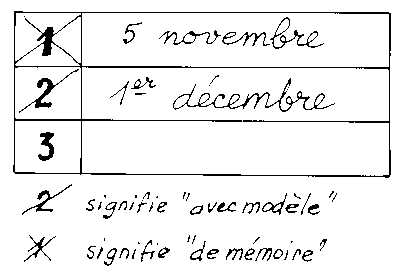 1 5 novembre
2 1er décembre
3
2 signifie "avec modèle"
1 signifie "de mémoire"